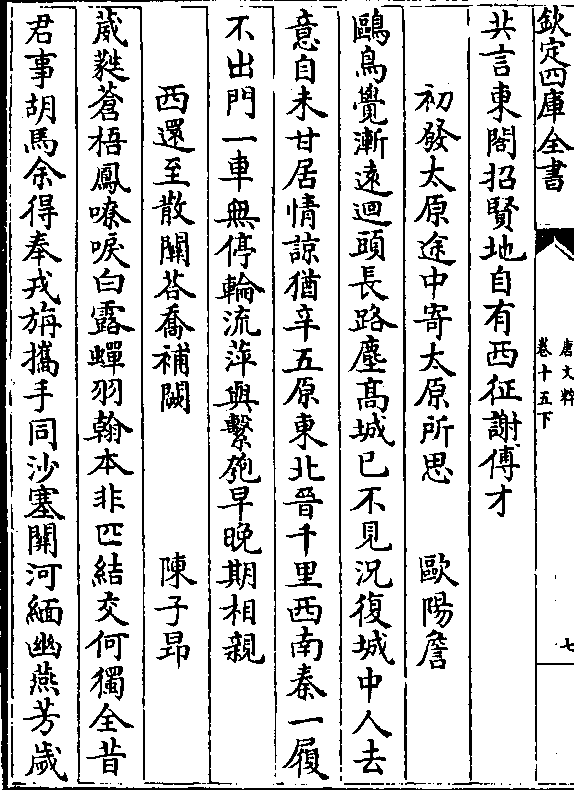 欽定四庫全書
唐文粹
卷十五下
七
共言東閣招賢地自有西征謝傅才
初發太原途中寄太原所思 歐陽詹
鷗鳥覺漸遠迴頭長路塵髙城已不見況復城中人去
意自未甘居情諒猶辛五原東北晉千里西南秦一履
不出門一車無停輪流萍與繫匏早晚期相親
西還至散關荅喬補闕 陳子昂
葳蕤蒼梧鳳嘹唳白露蟬羽翰本非匹結交何獨全昔
君事胡馬余得奉戎旃攜手同沙塞關河緬幽燕芳歲